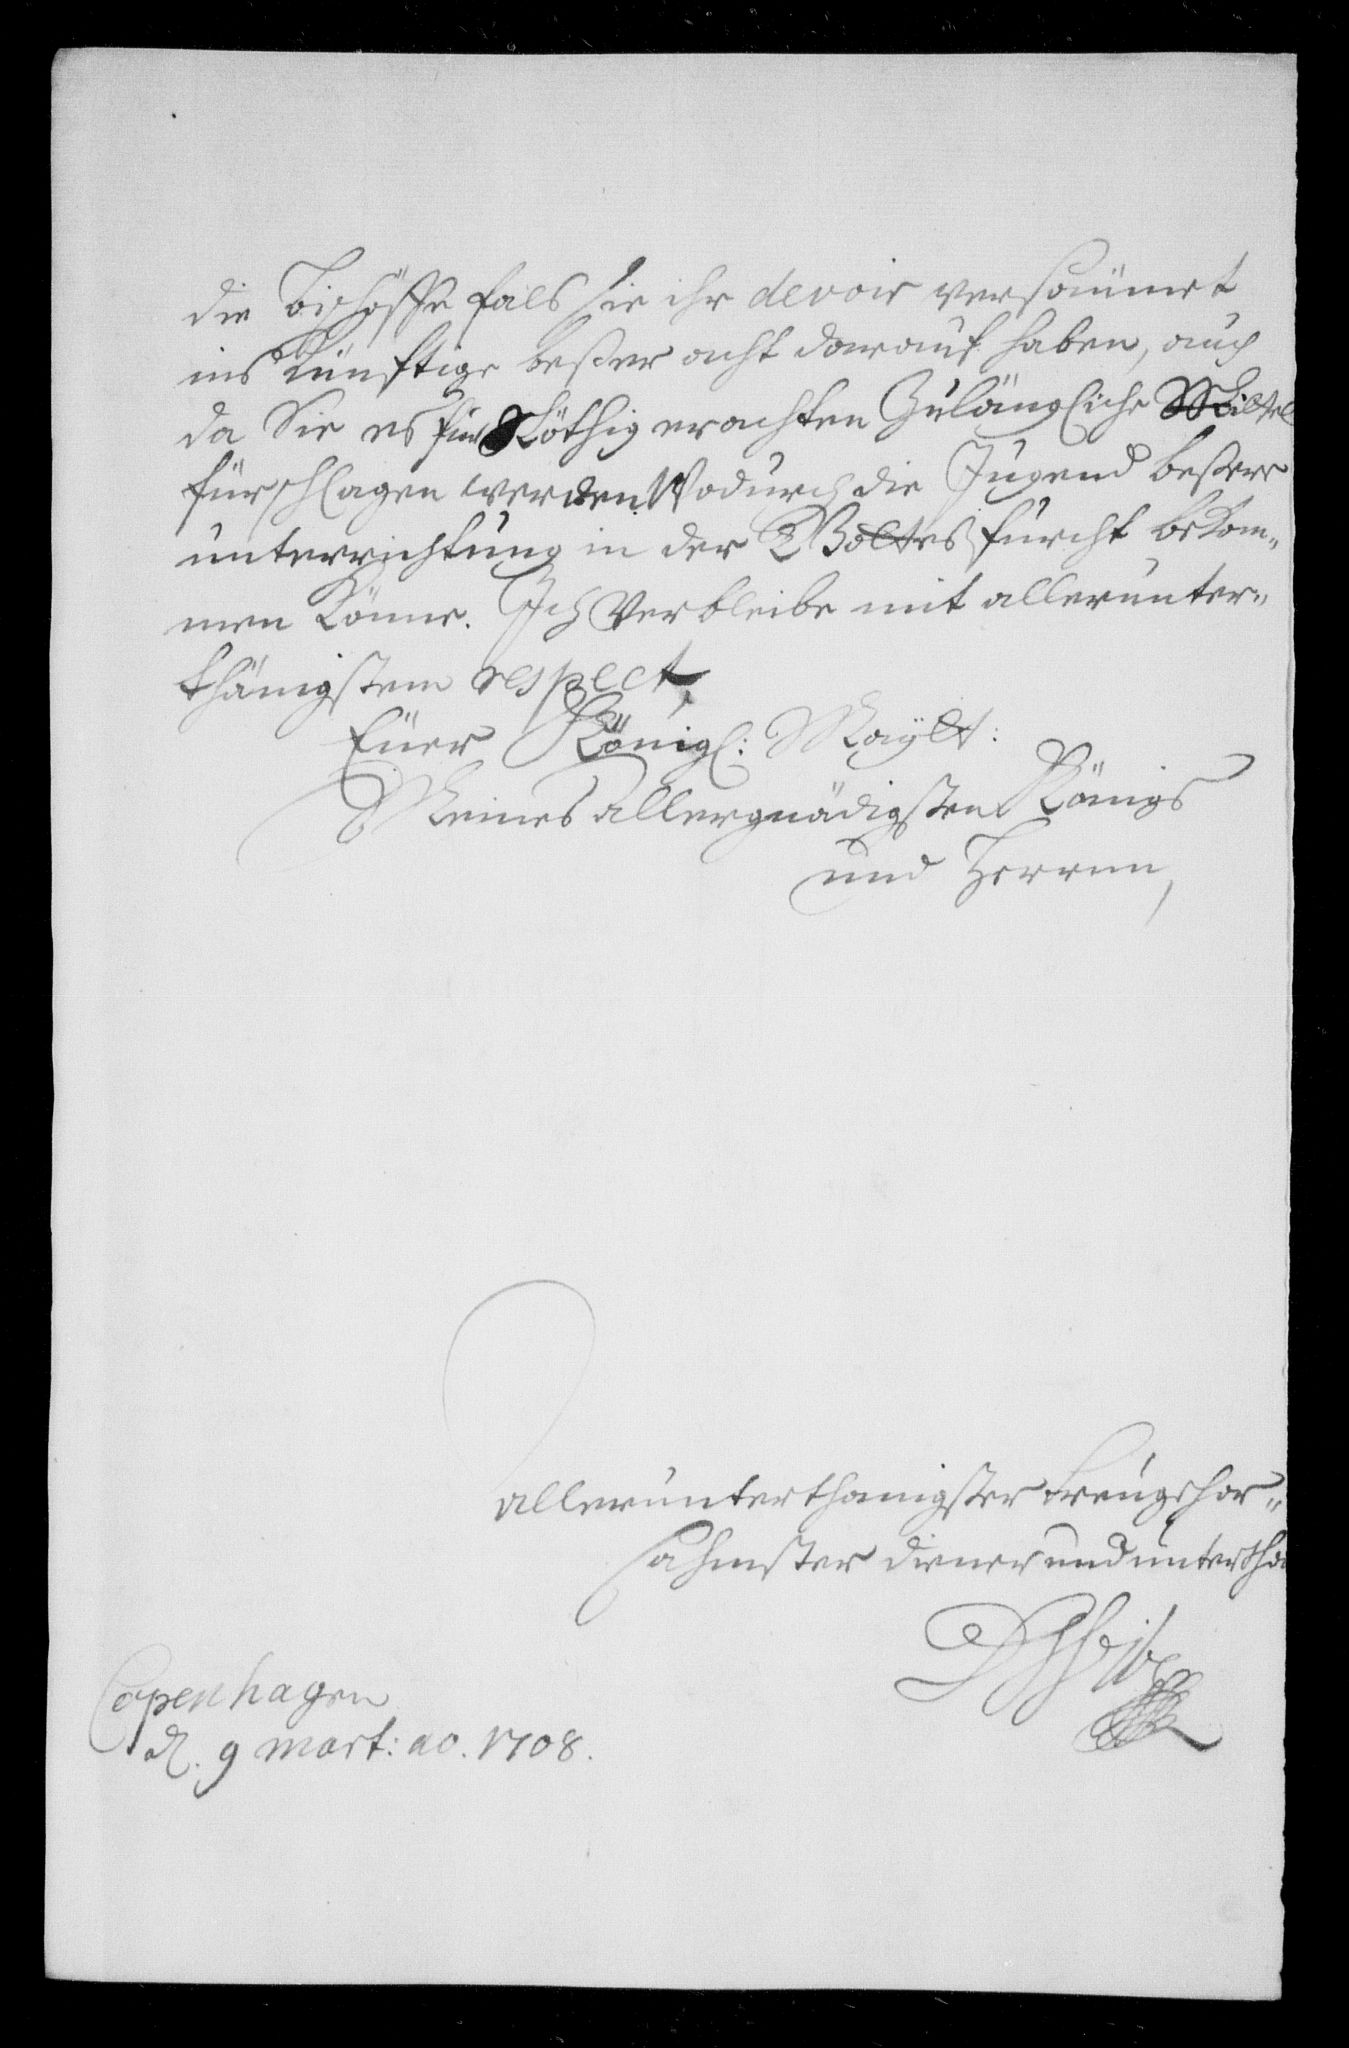 die Bischöffe fals sie ihr devoir versäümet
ins Künftige beßer acht darauf haben, auch
da Sie es für Nöthig erachten Zulängliche Mittel
fürschlagen werden Wodurch die Jugend beßere
unterrichtung in der Gottes furcht bekom„
men Könne. Ich Verbleibe mit allerunter„
thänigstem respect,
Eüer Königl: Maÿtt:
Meines allergnädigsten Königs
und Herren,
allerunterthänigster treugehor„
sahmster diener und untertha
Copenhagen
d. 9 mart: ao. 1708.